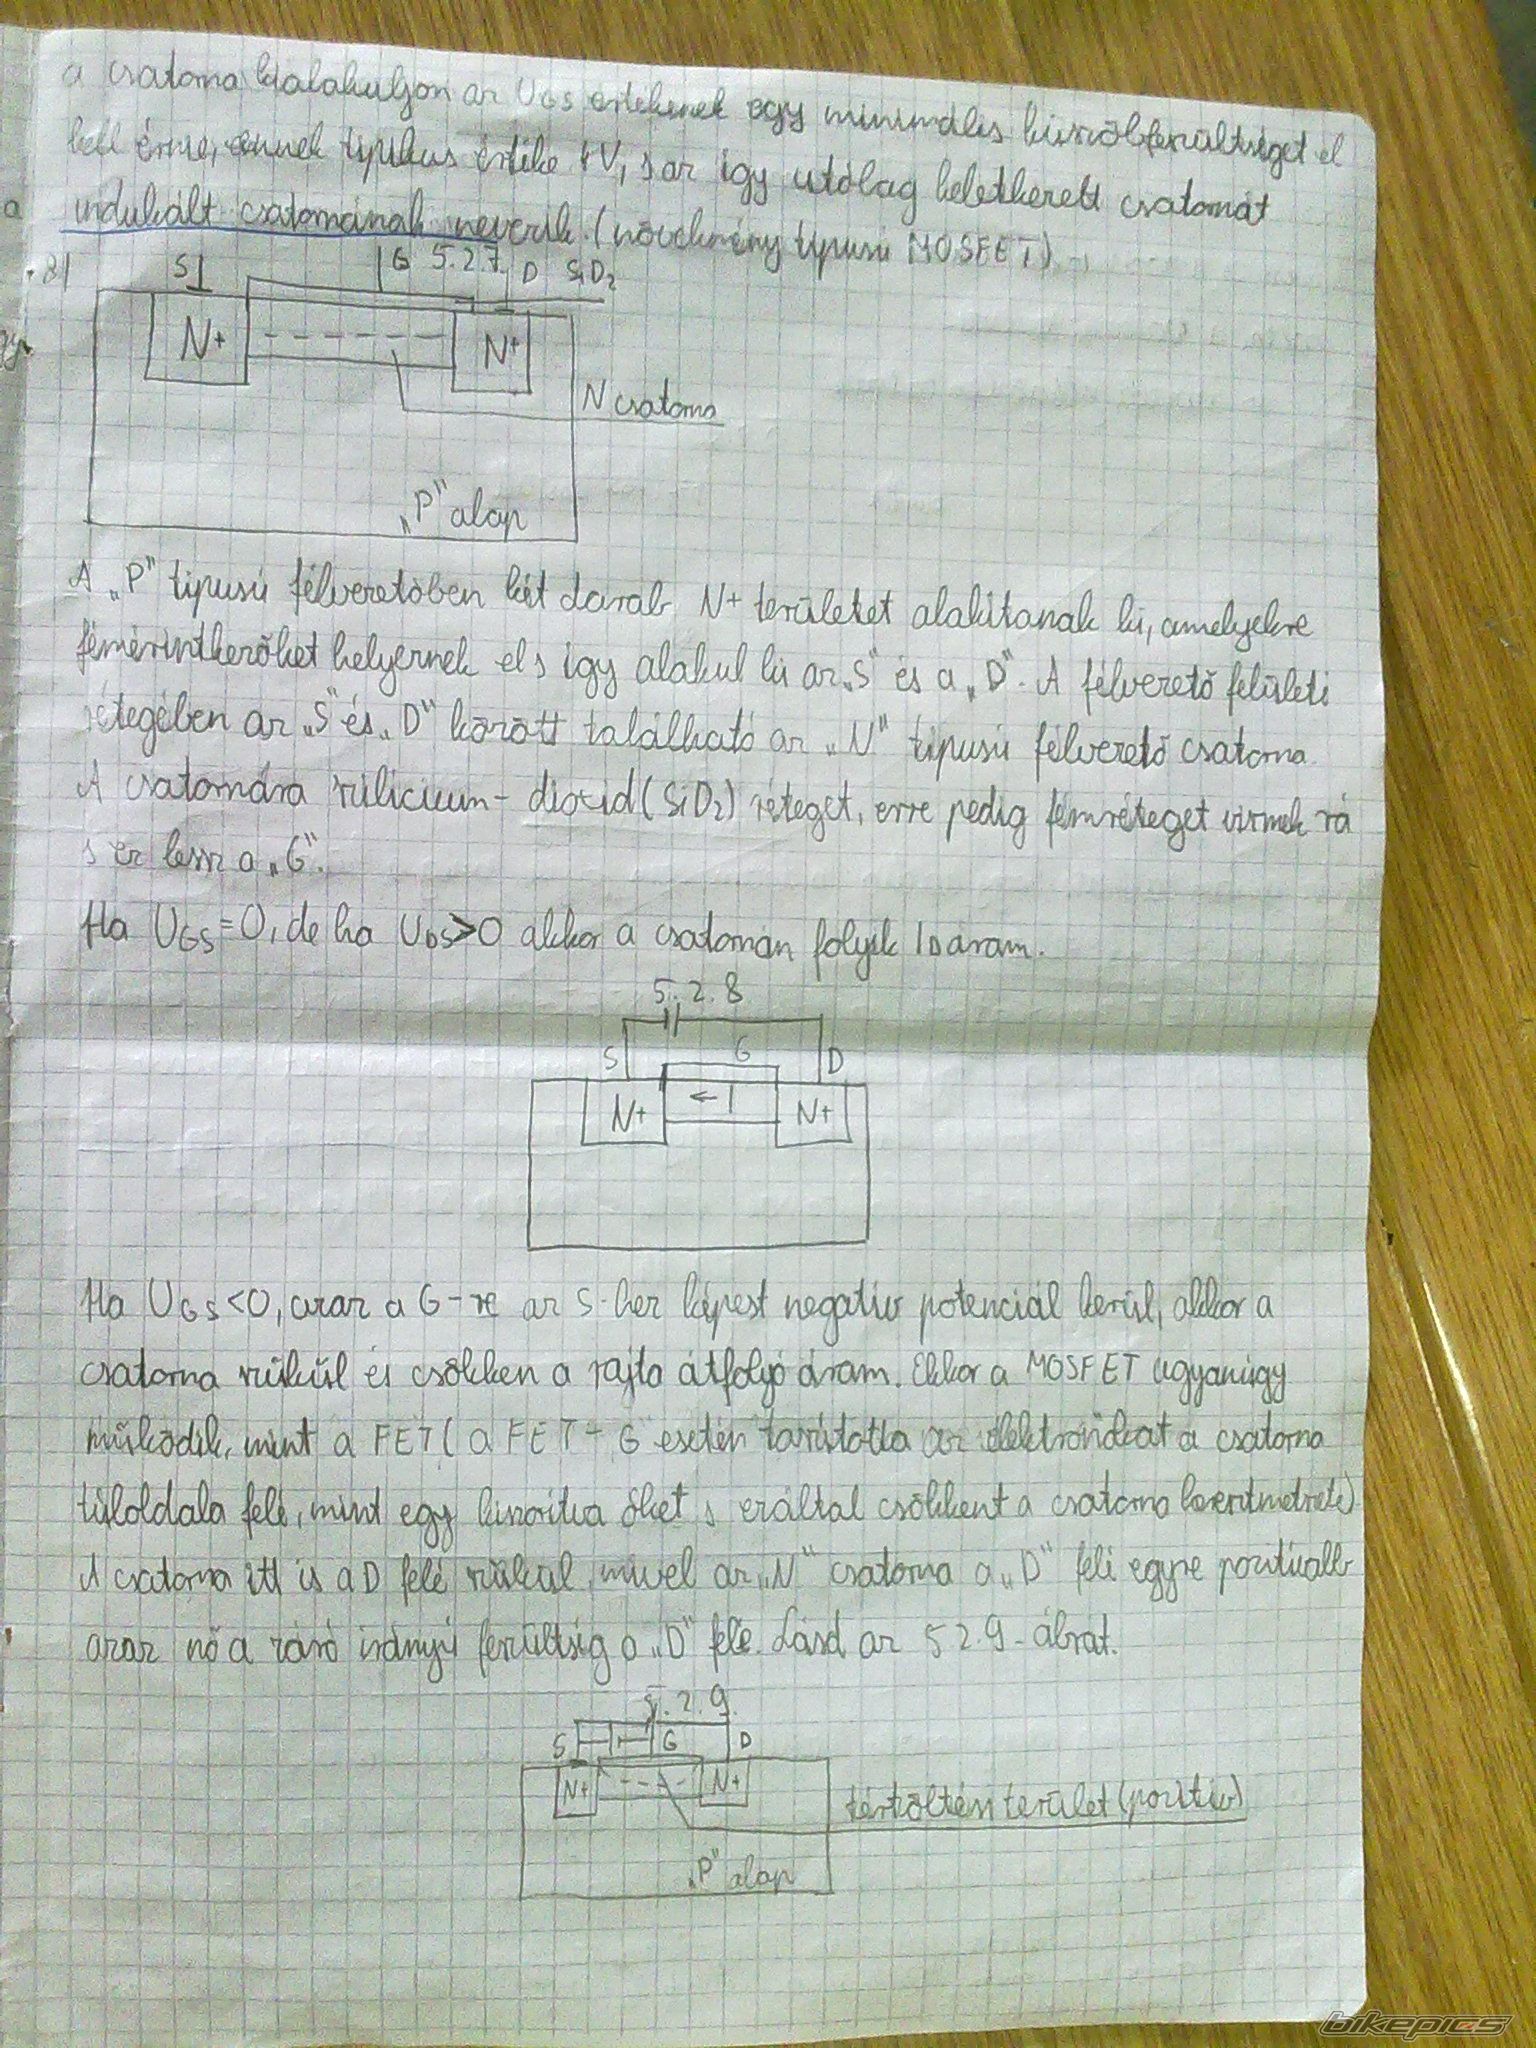 a csatorna kialakuljon az UGS értékének egy minimális küszöbfeszültséget el
kell érnie, ennek tipikus értéke 4V, s az így utólag keletkezett csatornát
a indukált csatornának nevezik. (növekmény típusú MOSFET)
S G 5.2.7. D SiO2
N+ N+
N csatorna
„P" alap
A „P" típusú félvezetőben két darab N+ területet alakítanak ki, amelyekre
fémérintkezőket helyeznek el s így alakul ki az „S" és a „D". A félvezető felületi
rétegében az „S" és „D" között található az „N" típusú félvezető csatorna.
A csatornára szilícium-dioxid (SiO2) réteget, erre pedig fémréteget visznek rá
s ez lesz a „G".
Ha UGS=0, de ha UDS>0 akkor a csatornán folyik ID áram.
5.2.8
S G D
N+ ← I N+
Ha UGS<0, azaz a G-re az S-hez képest negatív potenciál kerül, akkor a
csatorna szűkül és csökken a rajta átfolyó áram. Ekkor a MOSFET ugyanúgy
működik, mint a FET (a FET-G esetén taszította az elektronokat a csatorna
túloldala felé, mint egy kiszorítva őket s ezáltal csökkent a csatorna keresztmetszete)
A csatorna itt is a D felé szűkül, mivel az „N" csatorna a „D" felé egyre pozitívabb
azaz nő a záró irányú feszültség a „D" felé. Lásd az 5.2.9-ábrát.
5.2.9.
S G D
N+ N+
tértöltési terület (pozitív)
„P" alap
bikepics